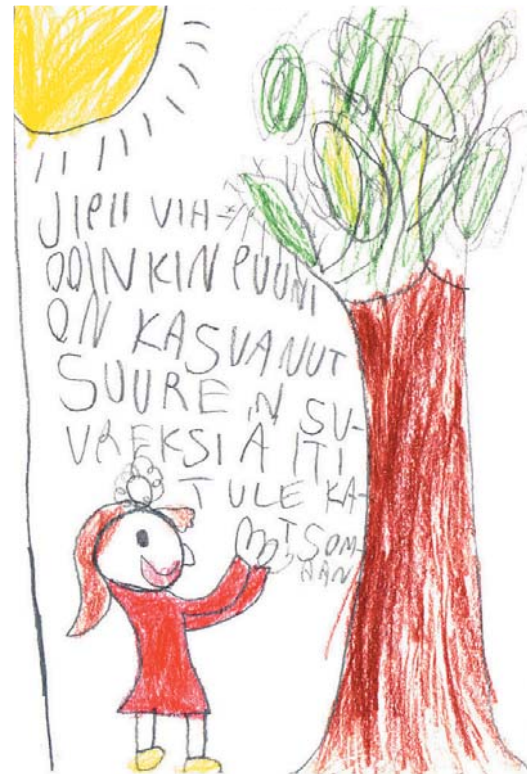 JIPII VIH-
DOINKIN PUUNI
ON KASVANUT
SUUREN SU-
UREKSI ÄITI
TULE KA-
TSOM-
AAN